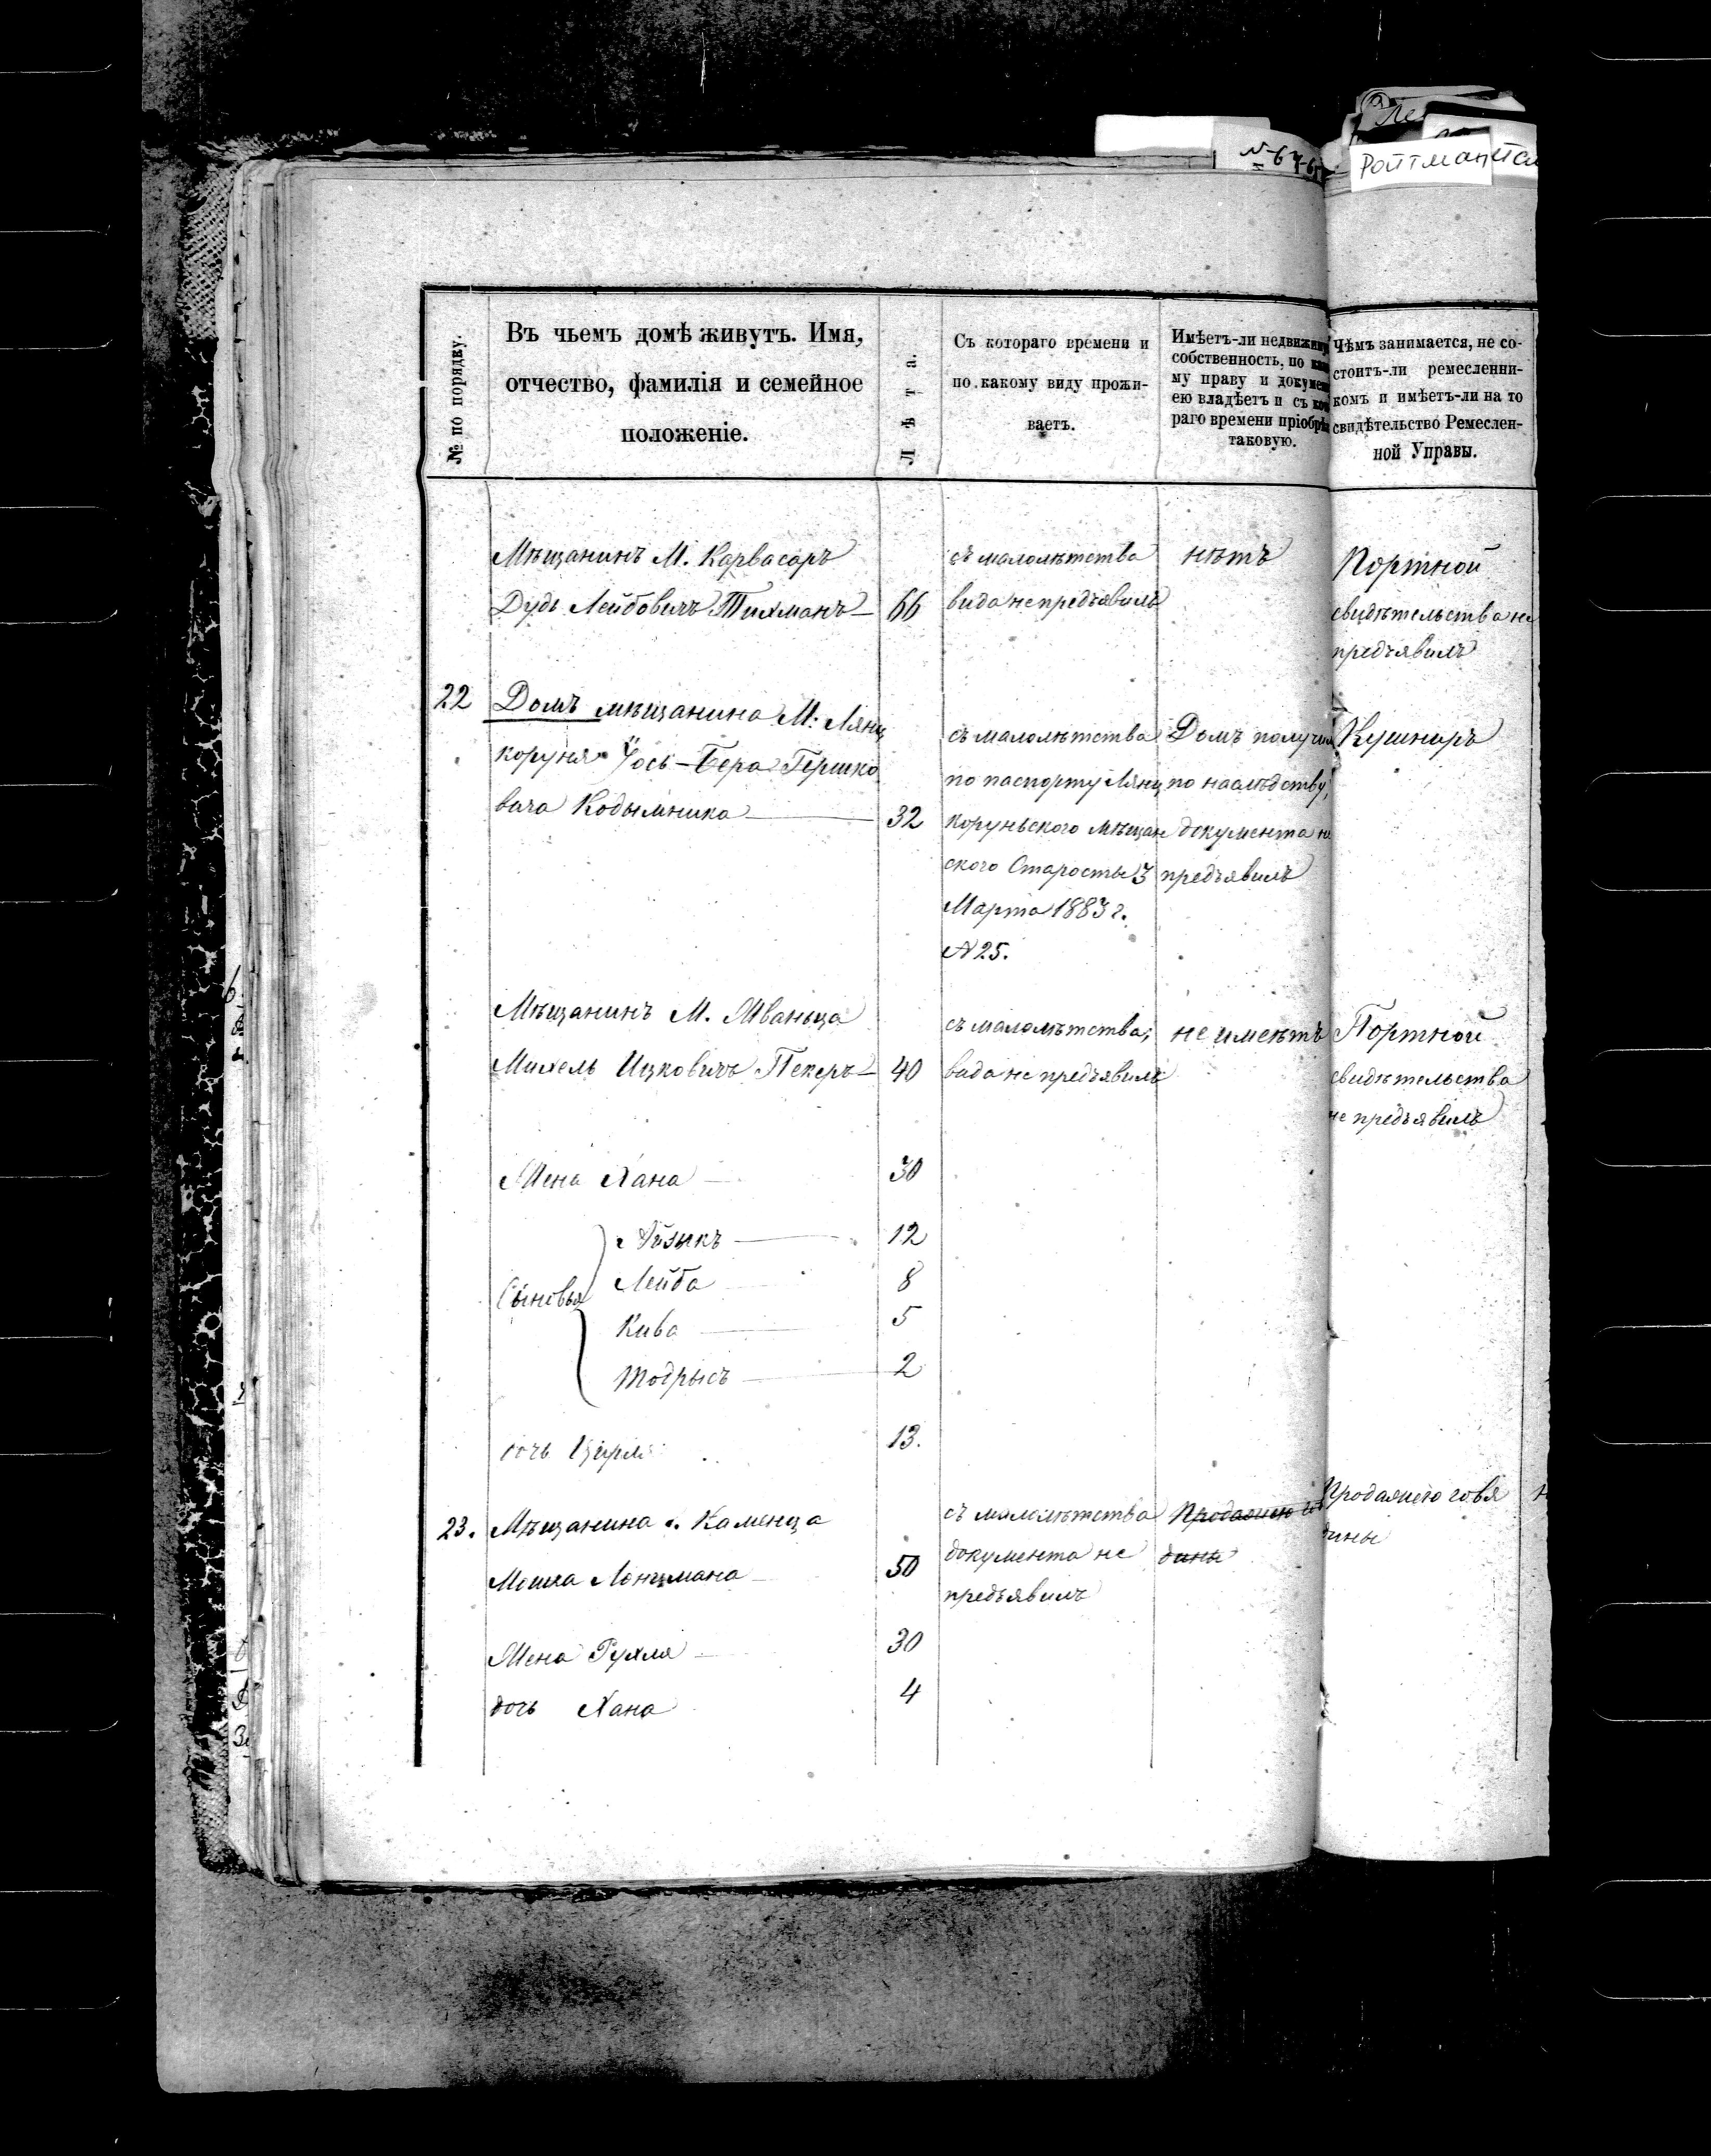 №-67-6
РОЙТМАН
№ по порядку.
Въ чьемъ домѣ живутъ. Имя,
отчество, фамилія и семейное
положеніе.
Лѣта.
Съ котораго времени и
по какому виду прожи-
ваетъ.
Имѣетъ-ли недвижи
собственность, по
му праву и докумен
ею владѣетъ и съ
раго времени пріобрѣ
таковую.
Чѣмъ занимается, не со-
стоитъ-ли ремесленни-
комъ и имѣетъ-ли на то
свидѣтельство Ремеслен-
ной Управы.
Мѣщанинъ М. Карвасаръ
Дудь Лейбовичъ Тихманъ — 66
съ малолѣтства
вида не предъявилъ
нѣтъ
Портной
свидѣтельства не
предъявилъ
22 Домъ мѣщанина М. Лянц
коруня Іось-Бера Гершко
вича Кодымника — 32
съ малолѣтства
по паспорту Лянц
коруньского мѣщан
ского Старосты 3
Марта 1883 г.
№ 25.
Домъ получи
по наслѣдству,
документа н
предъявилъ
Кушниръ
Мѣщанинъ М. Жванца
Михель Ицковичъ Пекеръ — 40
съ малолѣтства,
вида не предъявилъ
не имѣетъ
Портной
свидѣтельства
не предъявилъ
Жена Хана — 30
Сыновья
Айзыкъ — 12
Лейба 8
Кива — 5
Тодрысъ — 2
дочь Цирля 13.
23. Мѣщанина г. Каменца
Мошка Лонцмана — 50
съ малолѣтства
документа не
предъявилъ
Продажею
дины
Продажею говя
дины
Жена Рухля — 30
дочь Хана 4